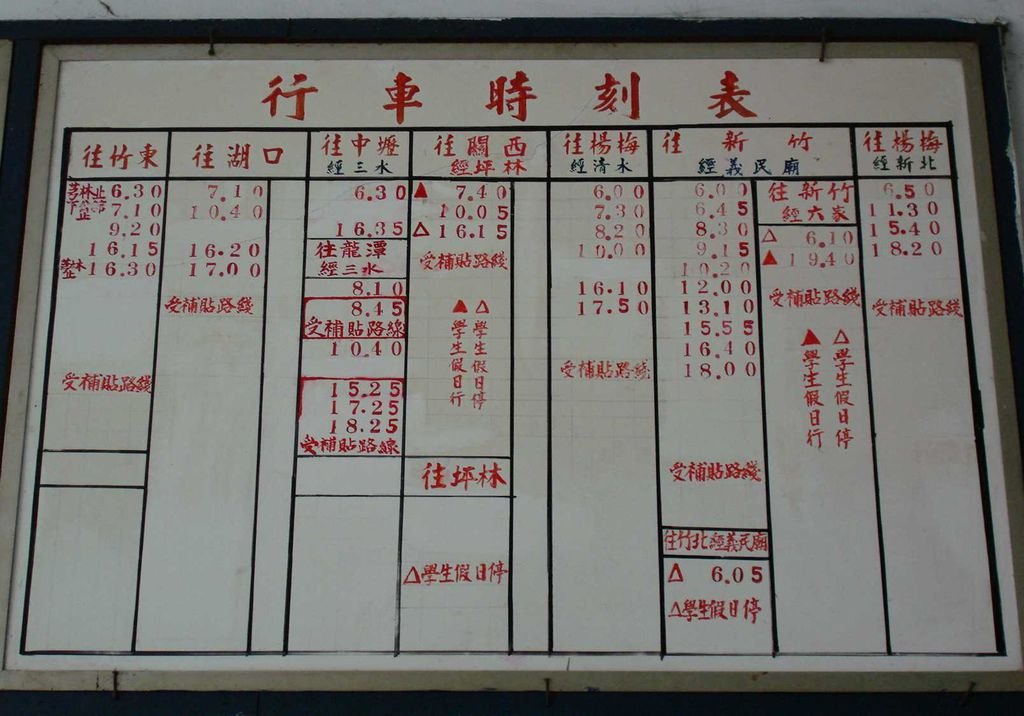 行車時刻表
往竹東
茅林止 6.30
下公館止 7.10
9.20
16.15
茅林止 16.30
受補貼路綫
往湖口
7.10
10.40
16.20
17.00
受補貼路綫
往中壢
經三水
6.30
16.35
往龍潭
經三水
8.10
8.45
受補貼路線
10.40
15.25
17.25
18.25
受補貼路線
往關西
經坪林
▲ 7.40
10.05
△ 16.15
受補貼路綫
▲學生假日行
△學生假日停
往坪林
△學生假日停
往楊梅
經清水
6.00
7.30
8.20
10.00
16.10
17.50
受補貼路綫
往新竹
經義民廟
6.00
6.45
8.30
9.15
10.20
12.00
13.10
15.55
16.40
18.00
受補貼路綫
往竹北經義民廟
△ 6.05
△學生假日停
往新竹
經六家
△ 6.10
▲ 19.40
受補貼路綫
▲學生假日行
△學生假日停
往楊梅
經新北
6.50
11.30
15.40
18.20
受補貼路綫